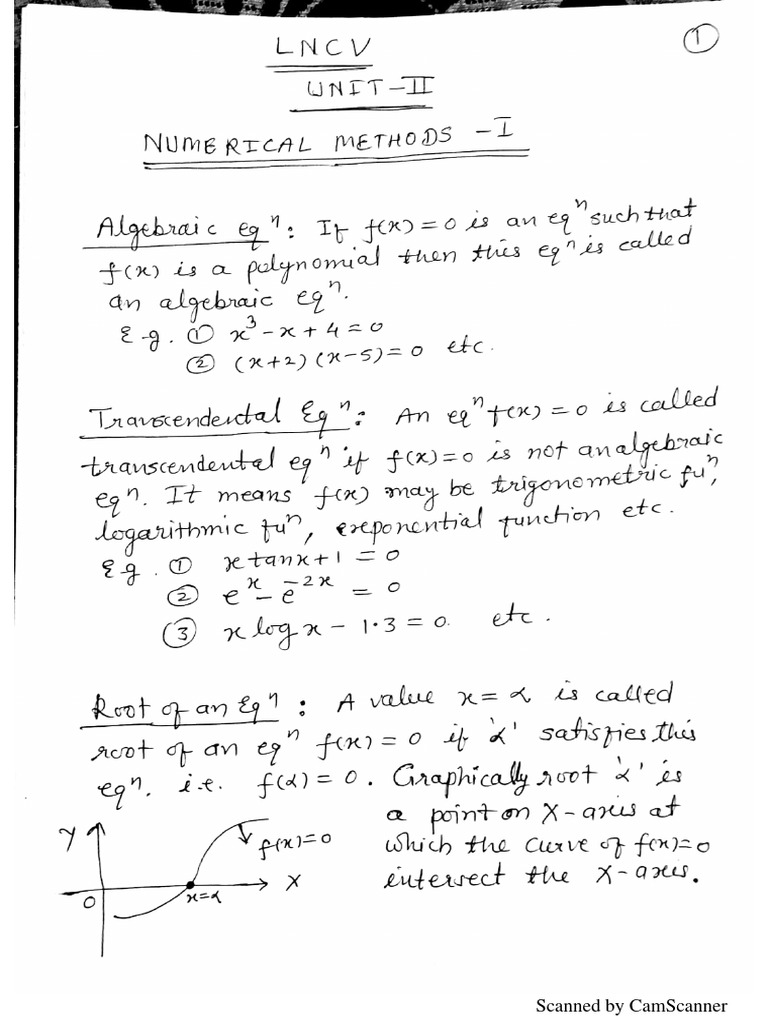 LNCV
①
UNIT-II
NUMERICAL METHODS -I
Algebraic eqⁿ: If f(x)=0 is an eqⁿ such that
f(x) is a polynomial then this eqⁿ is called
an algebraic eqⁿ.
E.g. ① x³-x+4=0
② (x+2)(x-5)=0 etc.
Transcendental Eqⁿ: An eqⁿ f(x)=0 is called
transcendental eqⁿ if f(x)=0 is not an algebraic
eqⁿ. It means f(x) may be trigonometric fuⁿ,
logarithmic fuⁿ, exponential function etc.
Eg. ① x tanx+1=0
② eˣ-e⁻²ˣ = 0
③ x logx - 1·3=0. etc.
Root of an Eqⁿ: A value x=α is called
root of an eqⁿ f(x)=0 if 'α' satisfies this
eqⁿ. i.e. f(α)=0. Graphically root 'α' is
a point on X-axis at
which the curve of f(x)=0
intersect the X-axis.
Y
f(x)=0
X
O
x=α
Scanned by CamScanner